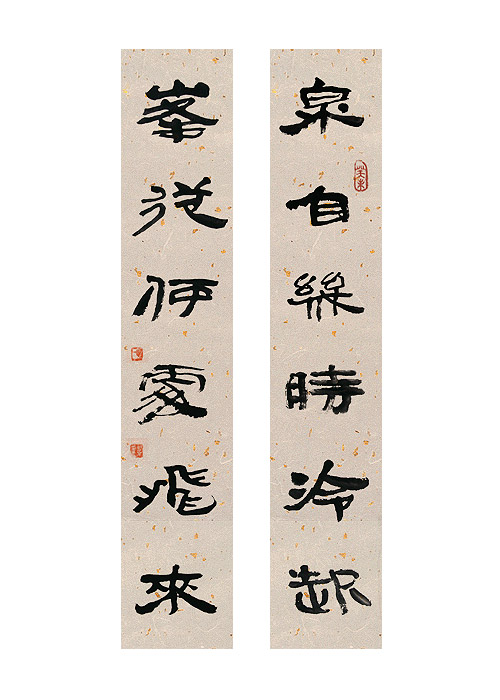 泉自幾時冷起
峯從何處飛來